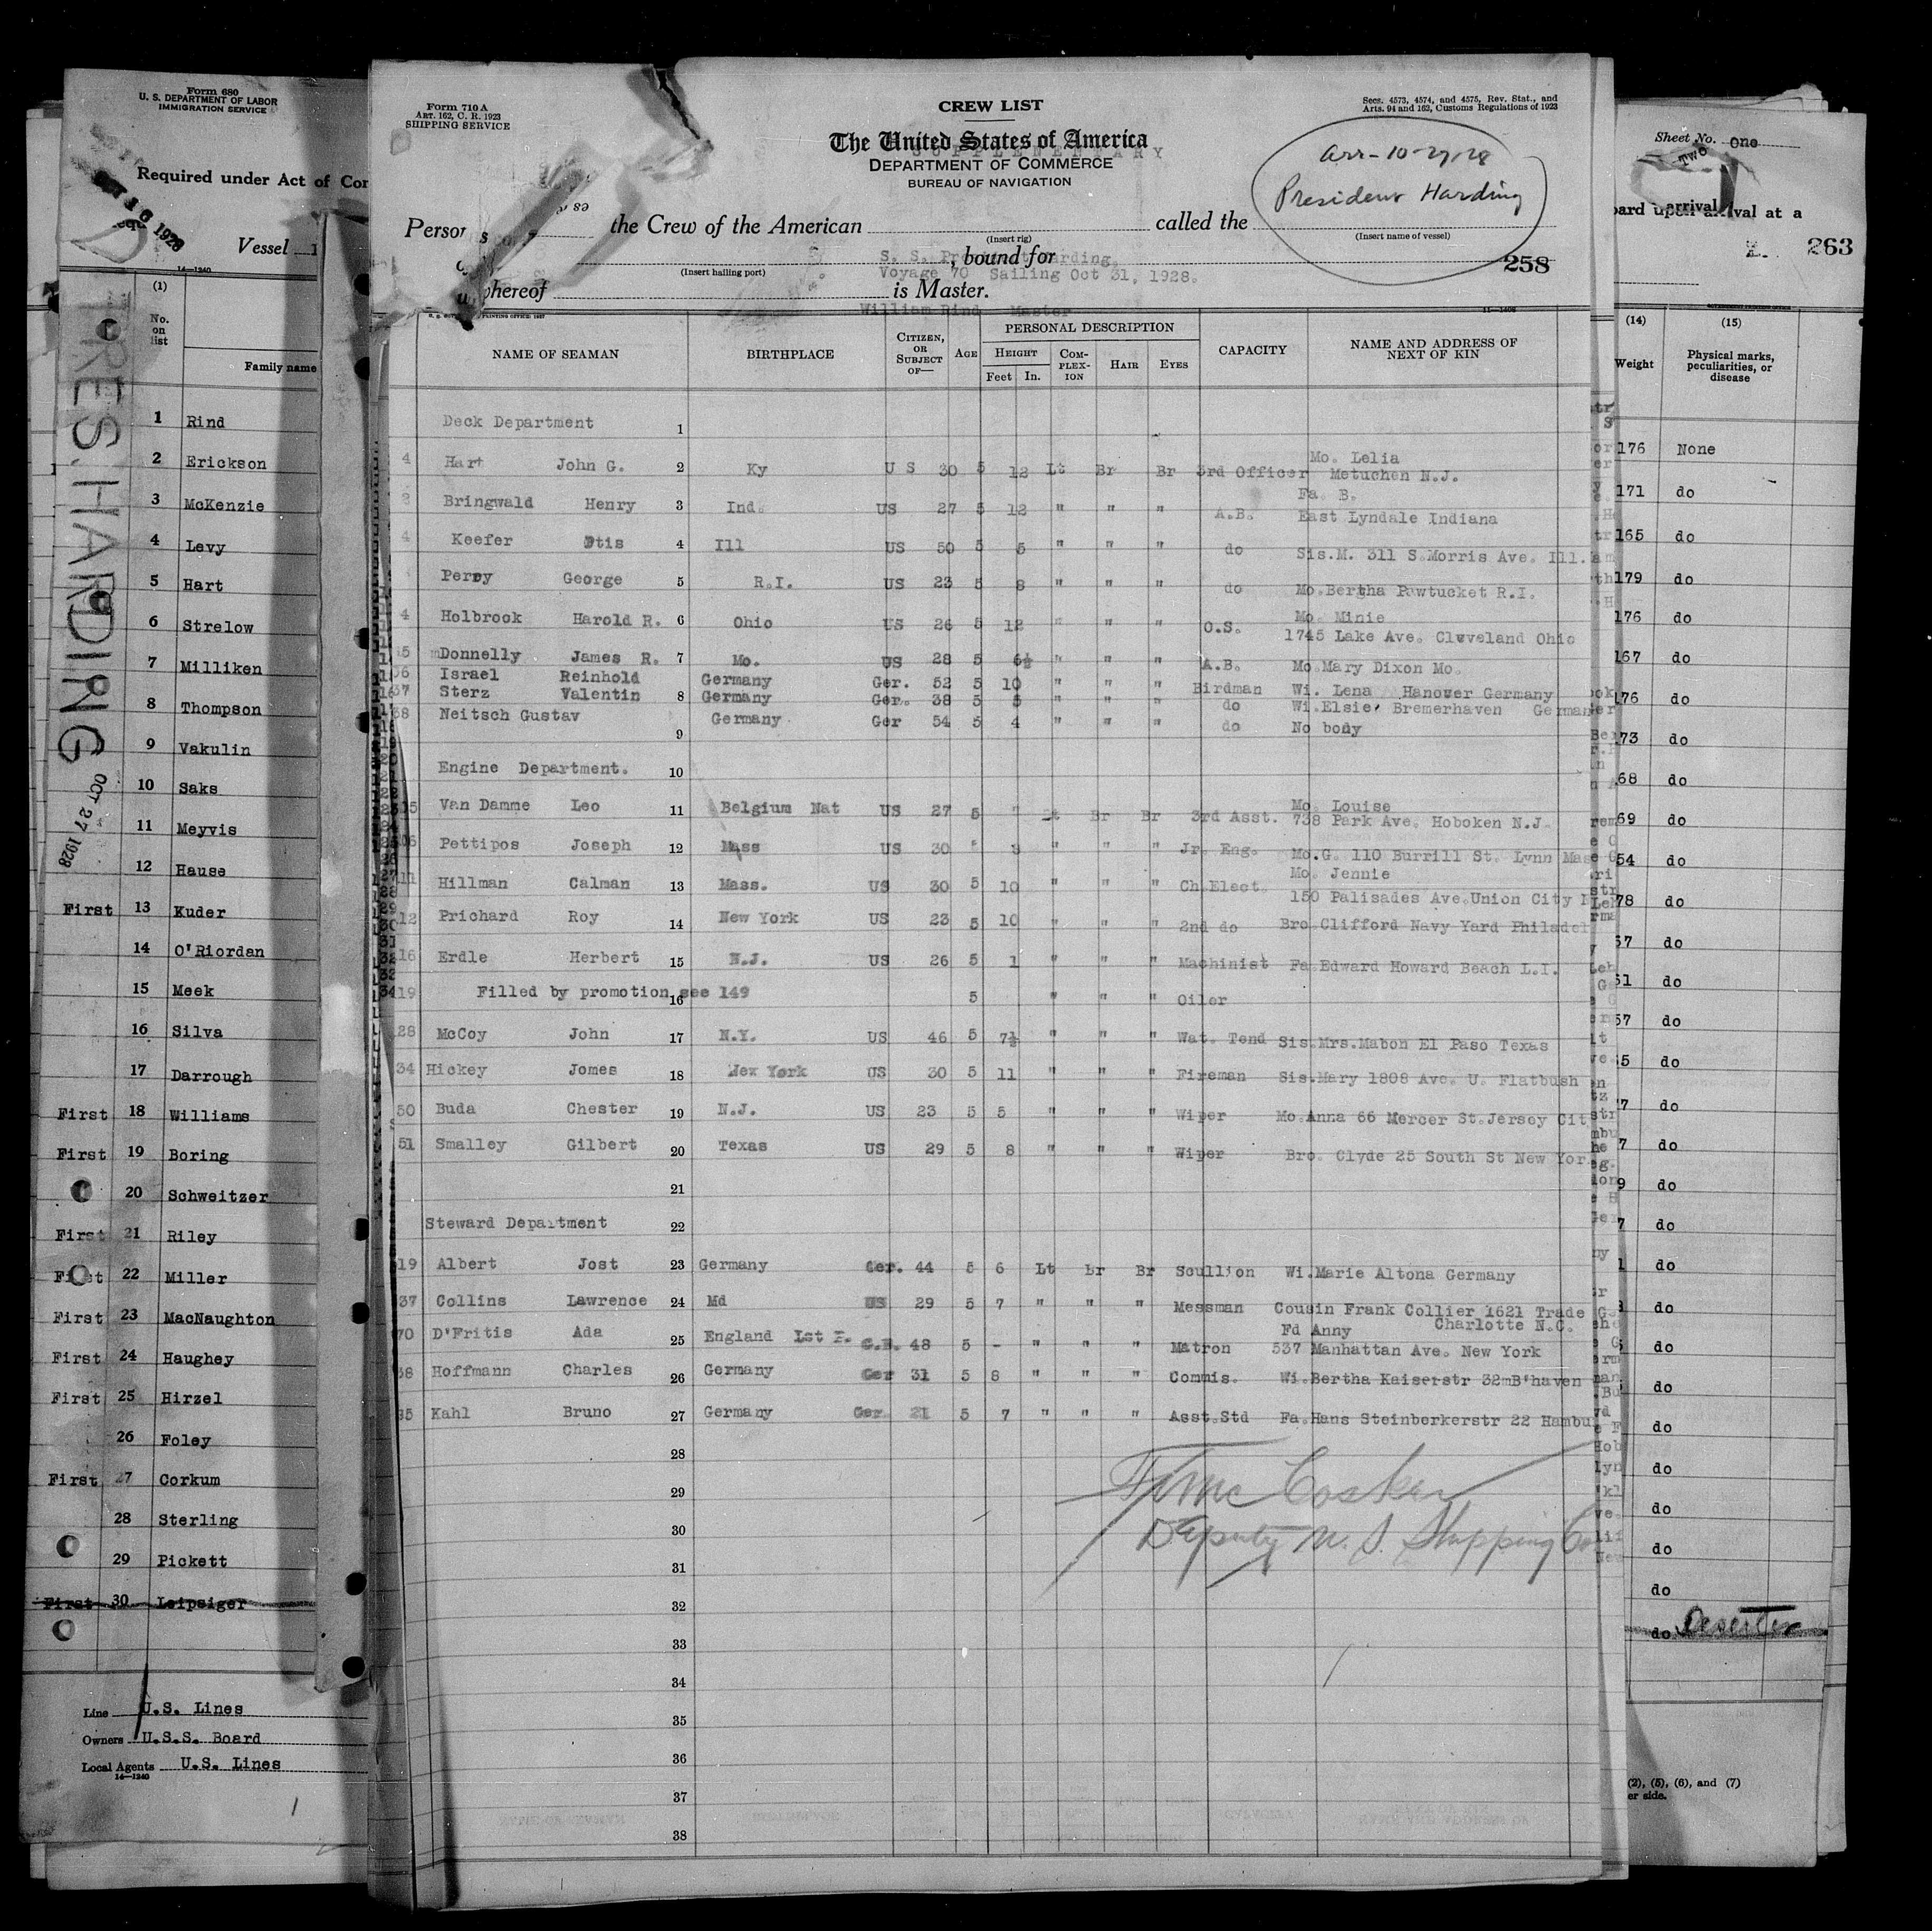 Form 680
U. S. DEPARTMENT OF LABOR
IMMIGRATION SERVICE
Required under Act of Con
1928
Vessel
14—1240
PRES. HARDING
OCT 27 1928
(1)
No. on list
Family name
1 Rind
2 Erickson
3 McKenzie
4 Levy
5 Hart
6 Strelow
7 Milliken
8 Thompson
9 Vakulin
10 Saks
11 Meyvis
12 Hause
First 13 Kuder
14 O'Riordan
15 Meek
16 Silva
17 Darrough
First 18 Williams
First 19 Boring
20 Schweitzer
First 21 Riley
First 22 Miller
First 23 MacNaughton
First 24 Haughey
First 25 Hirzel
26 Foley
First 27 Corkum
28 Sterling
29 Pickett
First 30 Leipsiger
Line U.S. Lines
Owners U.S.S. Board
Local Agents U.S. Lines
14—1240
Form 710 A
Art. 162, C. R. 1923
SHIPPING SERVICE
CREW LIST
Secs. 4573, 4574, and 4575, Rev. Stat., and
Arts. 94 and 162, Customs Regulations of 1923
The United States of America
SUPPLEMENTARY
DEPARTMENT OF COMMERCE
BUREAU OF NAVIGATION
arr-10-27-28
President Harding
the Crew of the American called the
(Insert rig) (Insert name of vessel)
, bound for
S. S. President Harding.
258
(Insert hailing port)
Voyage 70 Sailing Oct 31, 1928.
whereof is Master.
William Rind Master
NAME OF SEAMAN BIRTHPLACE CITIZEN, OR SUBJECT OF— AGE PERSONAL DESCRIPTION CAPACITY NAME AND ADDRESS OF NEXT OF KIN
HEIGHT COMPLEXION HAIR EYES
Feet In.
Deck Department 1
4 Hart John G. 2 Ky U S 30 5 12 Lt Br Br 3rd Officer Mo. Lelia
Metuchen N.J.
Bringwald Henry 3 Ind. US 27 5 12 " " " A.B. Fa. B.
East Lyndale Indiana
4 Keefer Otis 4 Ill US 50 5 5 " " " do Sis.M. 311 S.Morris Ave. Ill.
Perry George 5 R.I. US 23 5 8 " " " do Mo.Bertha Pawtucket R.I.
4 Holbrook Harold R. 6 Ohio US 26 5 12 " " " O.S. Mo. Minie
1745 Lake Ave. Cleveland Ohio
Donnelly James R. 7 Mo. US 28 5 6½ " " " A.B. Mo.Mary Dixon Mo.
Israel Reinhold Germany Ger. 52 5 10 " " " Birdman Wi. Lena Hanover Germany
Sterz Valentin 8 Germany Ger. 38 5 5 " " " do Wi.Elsie, Bremerhaven German
Neitsch Gustav 9 Germany Ger 54 5 4 " " " do No body
Engine Department. 10
Van Damme Leo 11 Belgium Nat US 27 5 Lt Br Br 3rd Asst. Mo. Louise
738 Park Ave. Hoboken N.J.
Pettipos Joseph 12 Mass US 30 " " " Jr. Eng. Mo.G. 110 Burrill St. Lynn Mas
Hillman Calman 13 Mass. US 30 5 10 " " " Ch.Elect. Mo. Jennie
150 Palisades Ave.Union City
12 Prichard Roy 14 New York US 23 5 10 " " " 2nd do Bro.Clifford Navy Yard Philadel
16 Erdle Herbert 15 N.J. US 26 5 1 " " " Machinist Fa.Edward Howard Beach L.I.
19 Filled by promotion see 149 16 5 " " " Oiler
28 McCoy John 17 N.Y. US 46 5 7½ " " " Wat. Tend Sis.Mrs.Mabon El Paso Texas
34 Hickey Jomes 18 Nex York US 30 5 11 " " " Fireman Sis.Mary 1808 Ave. U. Flatbush
50 Buda Chester 19 N.J. US 23 5 5 " " " Wiper Mo.Anna 66 Mercer St.Jersey Cit
51 Smalley Gilbert 20 Texas US 29 5 8 " " " Wiper Bro. Clyde 25 South St New Yor
21
Steward Department 22
19 Albert Jost 23 Germany Ger. 44 5 6 Lt Br Br Scullion Wi.Marie Altona Germany
37 Collins Lawrence 24 Md US 29 5 7 " " " Messman Cousin Frank Collier 1621 Trade
Charlotte N.C.
70 D'Fritis Ada 25 England 1st P. G.B. 48 5 - " " " Matron Fd Anny
537 Manhattan Ave. New York
Hoffmann Charles 26 Germany Ger 31 5 8 " " " Commis. Wi.Bertha Kaiserstr 32mB'haven
Kahl Bruno 27 Germany Ger. 21 5 7 " " " Asst.Std Fa.Hans Steinberkerstr 22 Hambu
28
29
30
31
32
33
34
35
36
37
38
Deputy U. S. Shipping Co
Sheet No. One
Two
arrival
board upon arrival at a
263
(14) (15)
Weight Physical marks, peculiarities, or disease
176 None
171 do
165 do
179 do
176 do
167 do
176 do
73 do
68 do
69 do
54 do
78 do
57 do
51 do
57 do
5 do
7 do
7 do
9 do
7 do
do
do
do
do
do
do
do
do
do
do Deserter
(2), (5), (6), and (7)
er side.